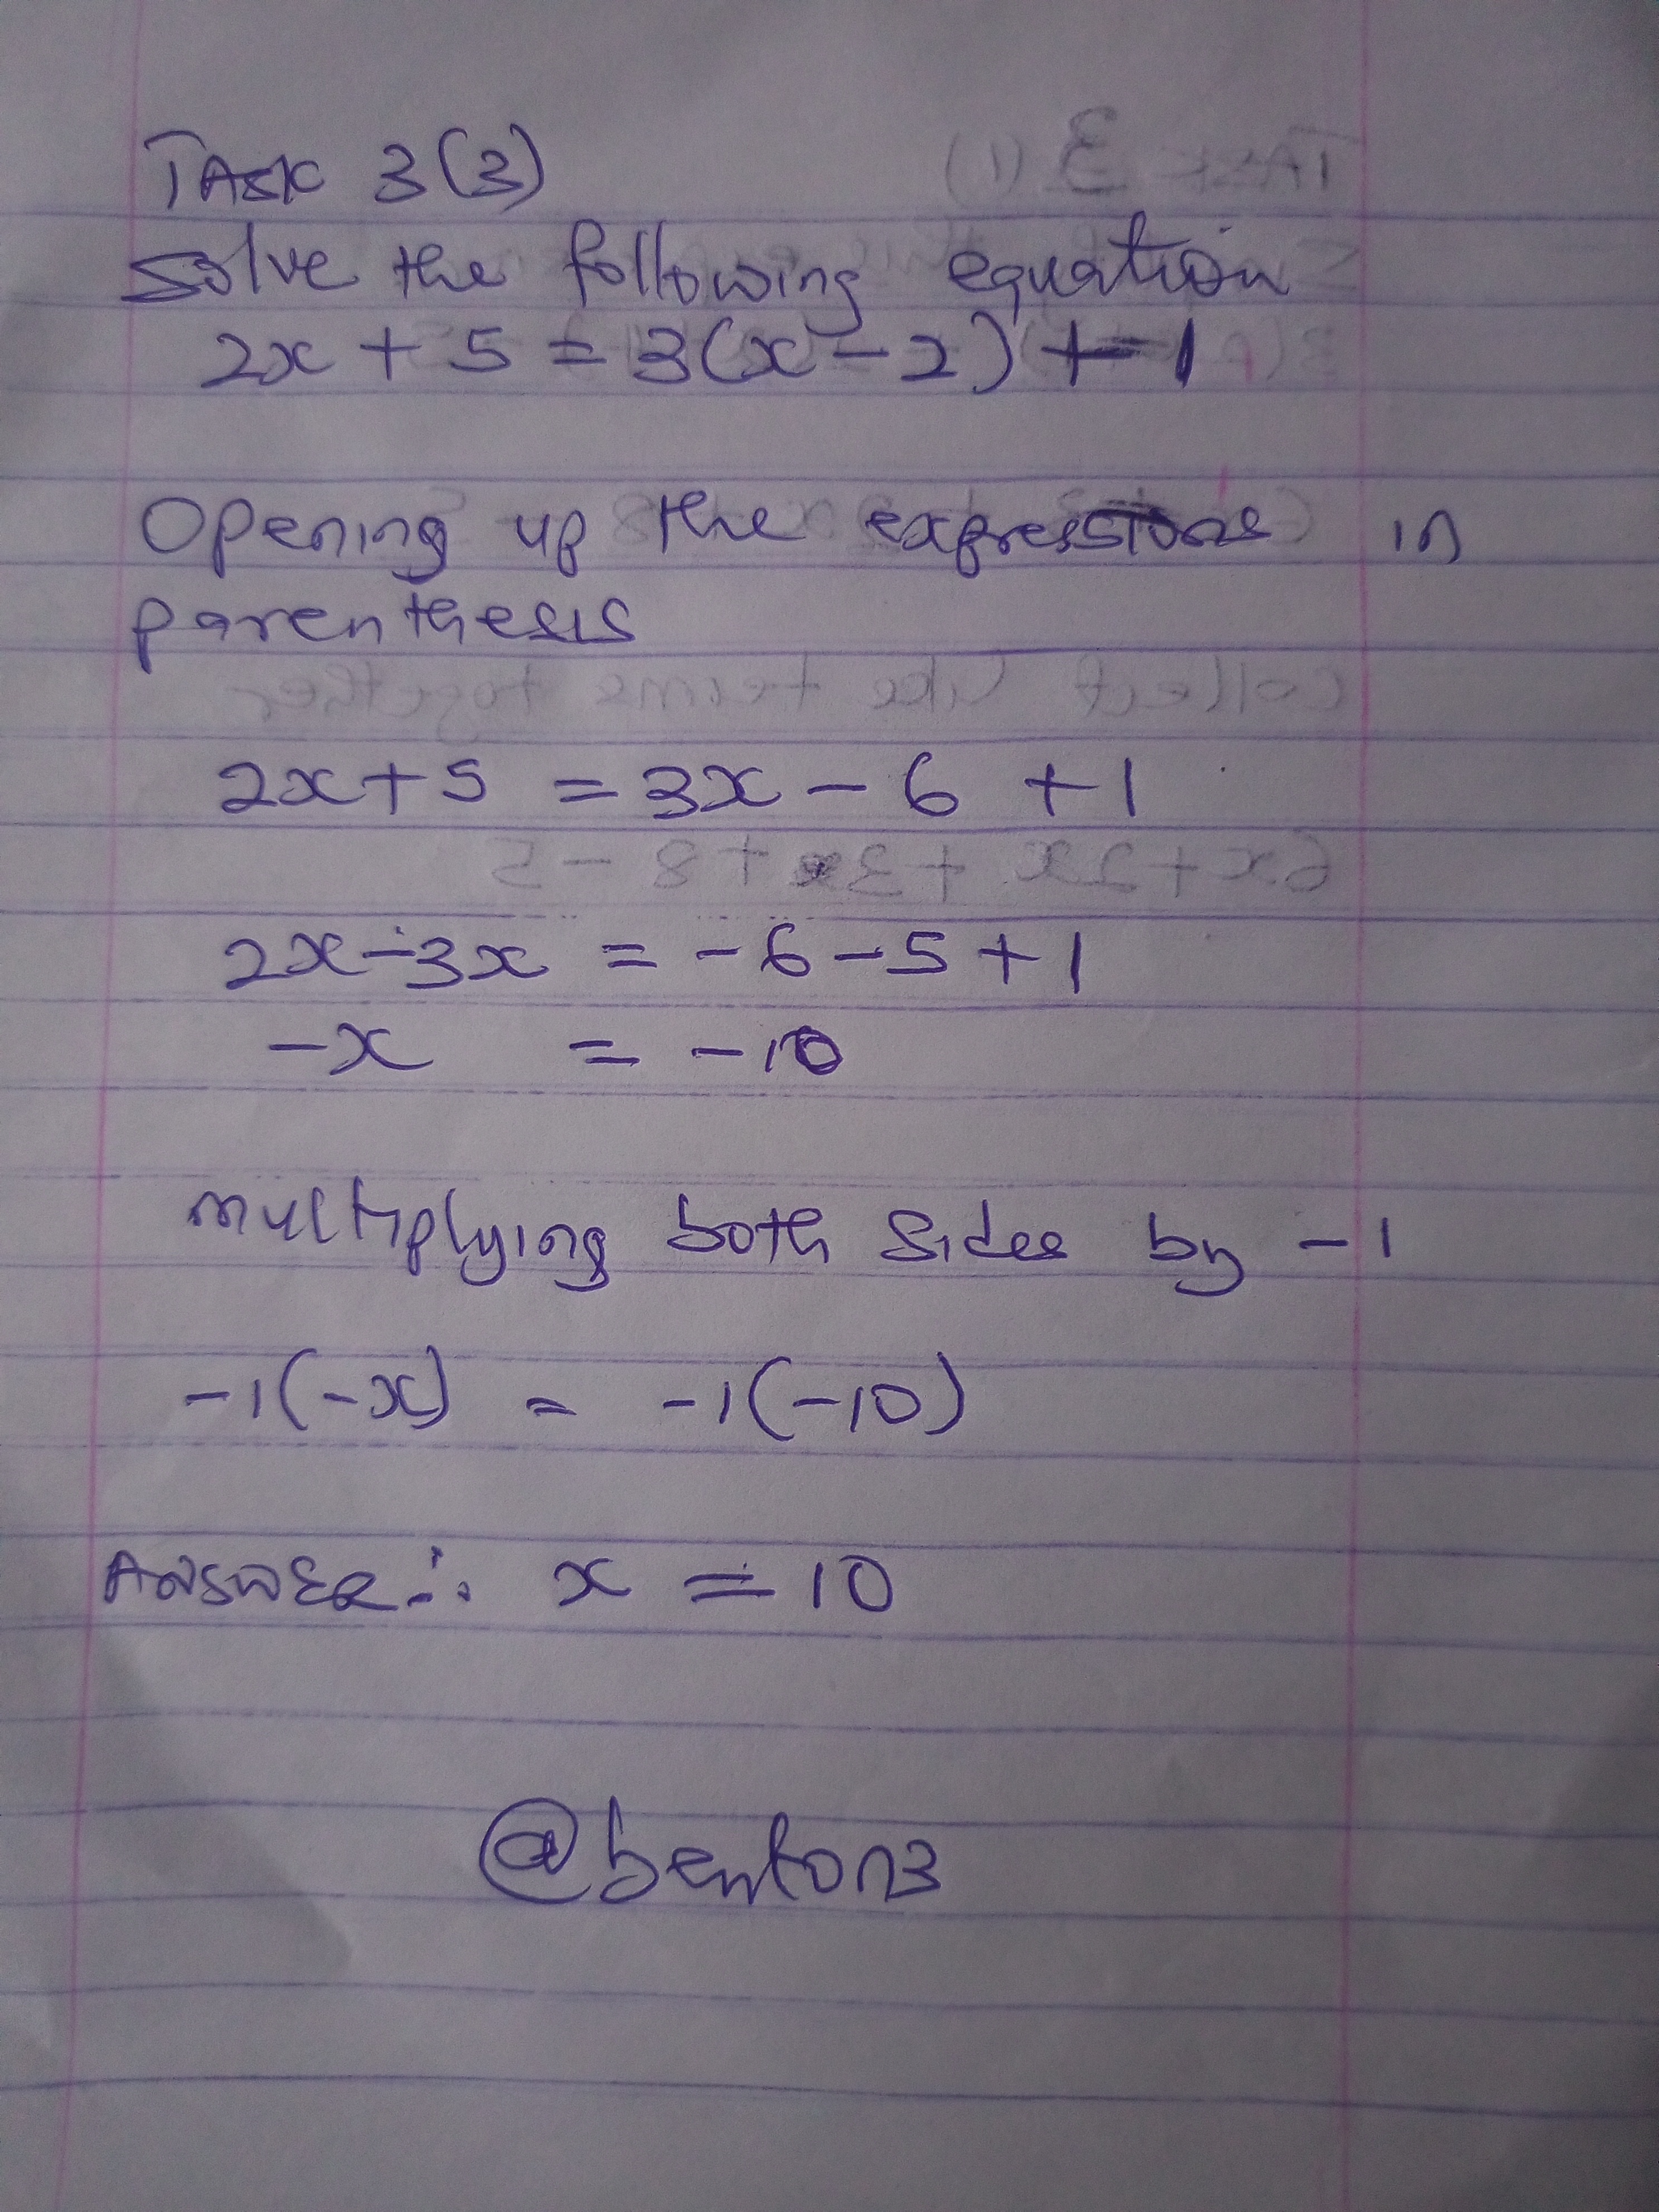 TASK 3(3)
Solve the following equation
2x + 5 = 3(x - 2) + 1
Opening up the expressions in
parenthesis
2x + 5 = 3x - 6 + 1
2x - 3x = -6 - 5 + 1
-x = -10
Multiplying both sides by -1
-1(-x) = -1(-10)
ANSWER ∴ x = 10
@benton3